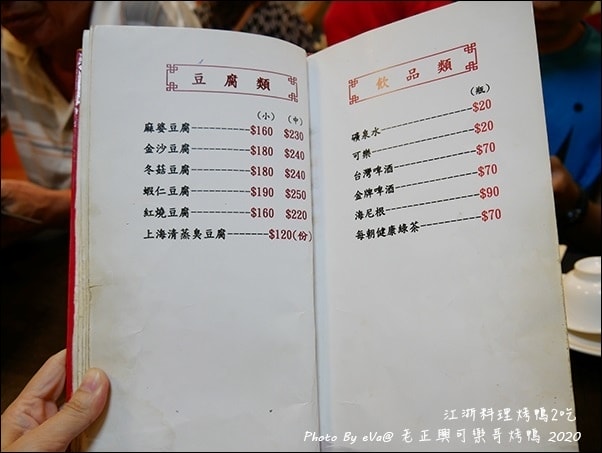 豆腐類
(小) (中)
麻婆豆腐----------$160 $230
金沙豆腐----------$180 $240
冬菇豆腐----------$180 $240
蝦仁豆腐----------$190 $250
紅燒豆腐----------$160 $220
上海清蒸臭豆腐-------$120(份)
飲品類
(瓶)
礦泉水---------------$20
可樂-----------------$20
台灣啤酒-------------$70
金牌啤酒-------------$70
海尼根---------------$90
每朝健康綠茶---------$70
江浙料理烤鴨2吃
Photo By eVa@ 老正興可樂哥烤鴨 2020